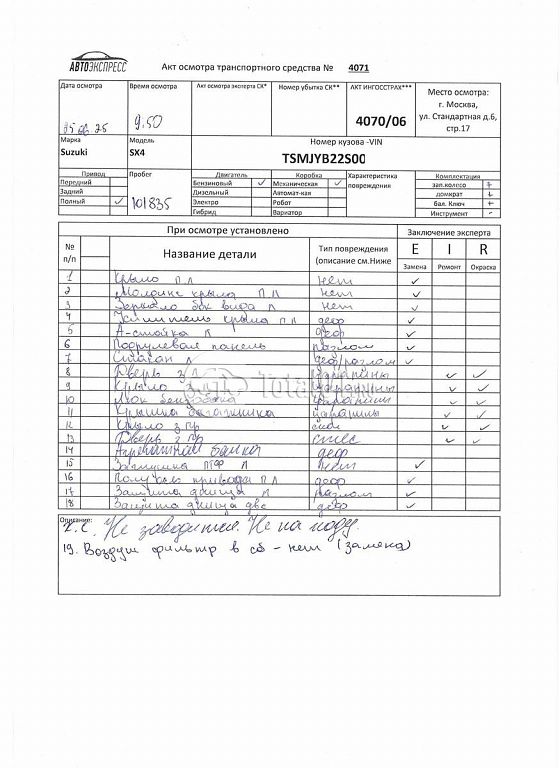 АВТОЭКСПРЕСС
Акт осмотра транспортного средства № 4071
Дата осмотра
Время осмотра 9.50
Акт осмотра эксперта СК*
Номер убытка СК**
АКТ ИНГОССТРАХ***
4070/06
Место осмотра:
г. Москва,
ул. Стандартная д.6,
стр.17
Марка
Suzuki
Модель
SX4
Номер кузова -VIN
TSMJYB22S00
Привод
Передний
Задний
Полный ✓
Пробег
101835
Двигатель
Бензиновый ✓
Дизельный
Электро
Гибрид
Коробка
Механическая ✓
Автомат-кая
Робот
Вариатор
Характеристика
повреждения
Комплектация
зап.колесо +
домкрат +
бал. Ключ +
Инструмент -
При осмотре установлено
Заключение эксперта
№ п/п
Название детали
Тип повреждения
(описание см.Ниже
E I R
Замена Ремонт Окраска
1 Крыло п л нет ✓
2 Молдинг крыла п л нет ✓
3 Зеркало бок вида л нет ✓
4 Усилитель крыла п л деф ✓
5 А-стойка л деф ✓
6 Подрулевая панель разлом ✓
7 Стакан л деф/разлом ✓
8 Дверь з л царапины ✓ ✓
9 Крыло з л царапины ✓ ✓
10 Люк бензобака царапины ✓ ✓
11 Крышка багажника царапины ✓ ✓
12 Крыло з пр ✓ ✓
13 Дверь з пр ✓ ✓
14 деф
15 Заглушка ПТФ л нет ✓
16 привода п л деф ✓
17 Защита днища л разлом ✓
18 Защита днища деф ✓
Описание:
Не заводится. Не на ходу.
19. Воздуш фильтр в сб - нет (замена)